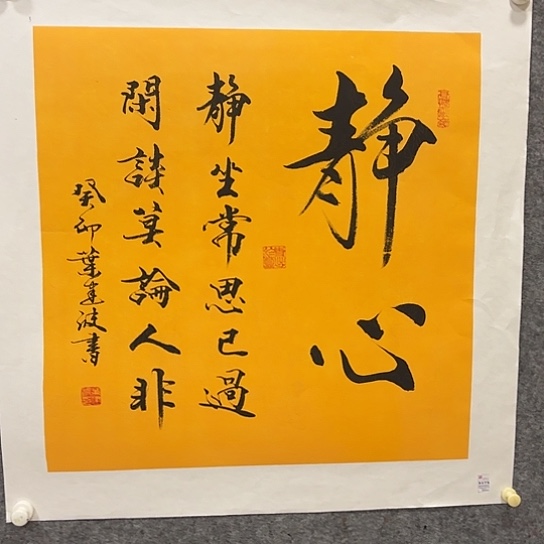 静心
静坐常思已過
閑談莫論人非
癸卯葉建波書